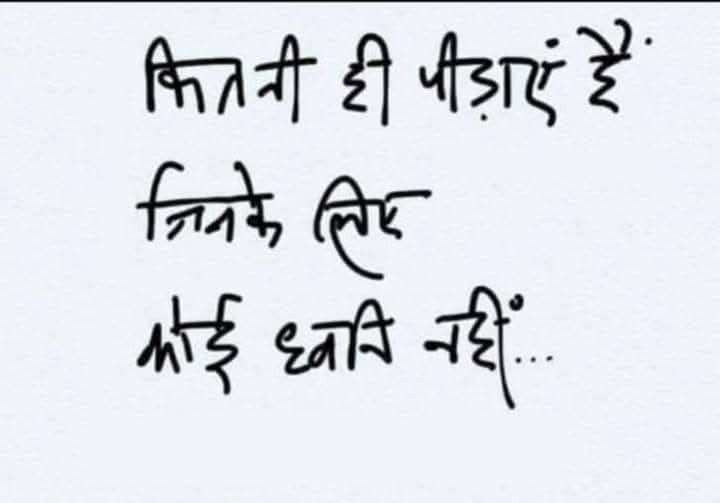 कितनी ही पीड़ाएं हैं
जिनके लिए
कोई ध्वनि नहीं...